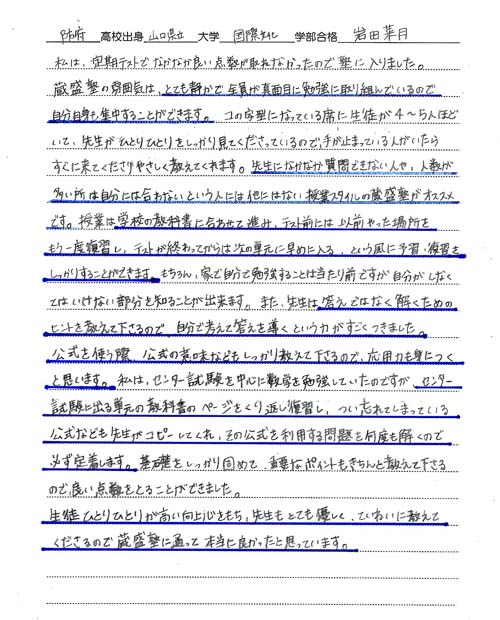 防府 高校出身 山口県立 大学 国際文化 学部合格 岩田菜月
私は、定期テストでなかなか良い点数が取れなかったので塾に入りました。
蔵盛塾の雰囲気は、とても静かで全員が真面目に勉強に取り組んでいるので
自分自身も集中することができます。コの字型になっている席に生徒が4〜5人ほど
いて、先生がひとりひとりをしっかり見てくださっているので、手が止まっている人がいたら
すぐに来てくださりやさしく教えてくれます。先生になかなか質問できない人や、人数が
多い所は自分には合わないという人には他にはない授業スタイルの蔵盛塾がオススメ
です。授業は学校の教科書に合わせて進み、テスト前には以前やった場所を
もう一度復習し、テストが終わってからは次の単元に早めに入る、という風に予習・復習を
しっかりすることができます。もちろん、家で自分で勉強することは当たり前ですが自分がしなく
てはいけない部分を知ることが出来ます。また、先生は答えではなく解くための
ヒントを教えて下さるので、自分で考えて答えを導くという力がすごくつきました。
公式を使う際、公式の意味などもしっかり教えて下さるので、応用力も身につく
と思います。私は、センター試験を中心に数学を勉強していたのですが、センター
試験に出る単元の教科書のページをくり返し復習し、つい忘れてしまっている
公式なども先生がコピーしてくれ、その公式を利用する問題を何度も解くので
必ず定着します。基礎をしっかり固めて、重要なポイントもきちんと教えて下さる
ので、良い点数をとることができました。
生徒ひとりひとりが高い向上心をもち、先生もとても優しく、ていねいに教えて
くださるので蔵盛塾に通って本当に良かったと思っています。